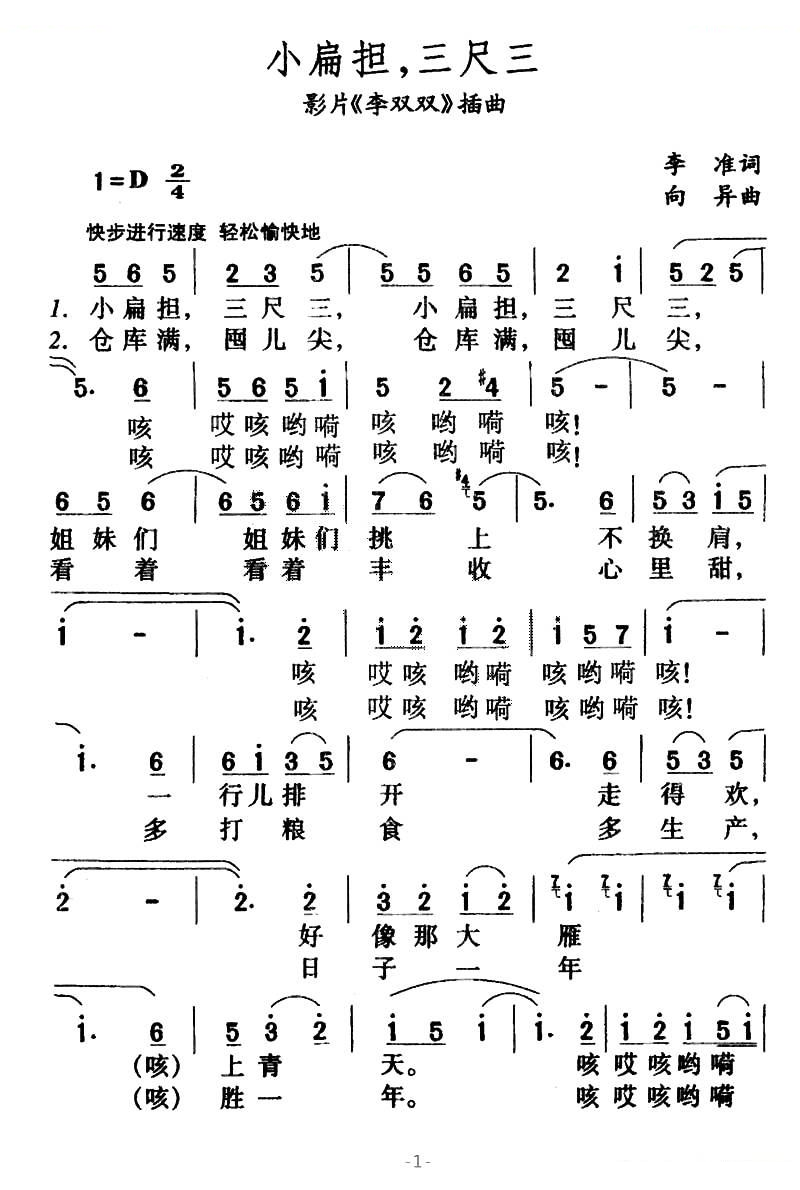 小扁担,三尺三
影片《李双双》插曲
1=D 2/4
李 准词
向 异曲
快步进行速度 轻松愉快地
5 6 5 | 2 3 5 | 5 5 6 5 | 2 i | 5 2 5
1. 小扁担, 三尺三, 小扁担, 三尺三,
2. 仓库满, 囤儿尖, 仓库满, 囤儿尖,
5. 6 | 5 6 5 i | 5 2 #4 | 5 - | 5 -
咳 哎咳哟嗬 咳哟嗬 咳!
咳 哎咳哟嗬 咳哟嗬 咳!
6 5 6 | 6 5 6 i | 7 6 #4 5 | 5. 6 | 5 3 i 5
姐妹们 姐妹们 挑上 不换肩,
看着 看着 丰收 心里甜,
i - | i. 2 | i 2 i 2 | i 5 7 | i -
咳 哎咳哟嗬 咳哟嗬 咳!
咳 哎咳哟嗬 咳哟嗬 咳!
i. 6 | 6 i 3 5 | 6 - | 6. 6 | 5 3 5
一 行儿排 开 走得欢,
多 打粮 食 多生产,
2 - | 2. 2 | 3 2 i 2 | 7 i 7 i | 7 i 7 i
好 像那大 雁
日 子一 年
i. 6 | 5 3 2 | i 5 i | i. 2 | i 2 i 5 i
(咳) 上青 天。 咳 哎咳哟嗬
(咳) 胜一 年。 咳 哎咳哟嗬
-1-